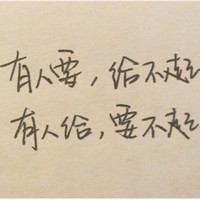 有人要，给不起
有人给，要不起